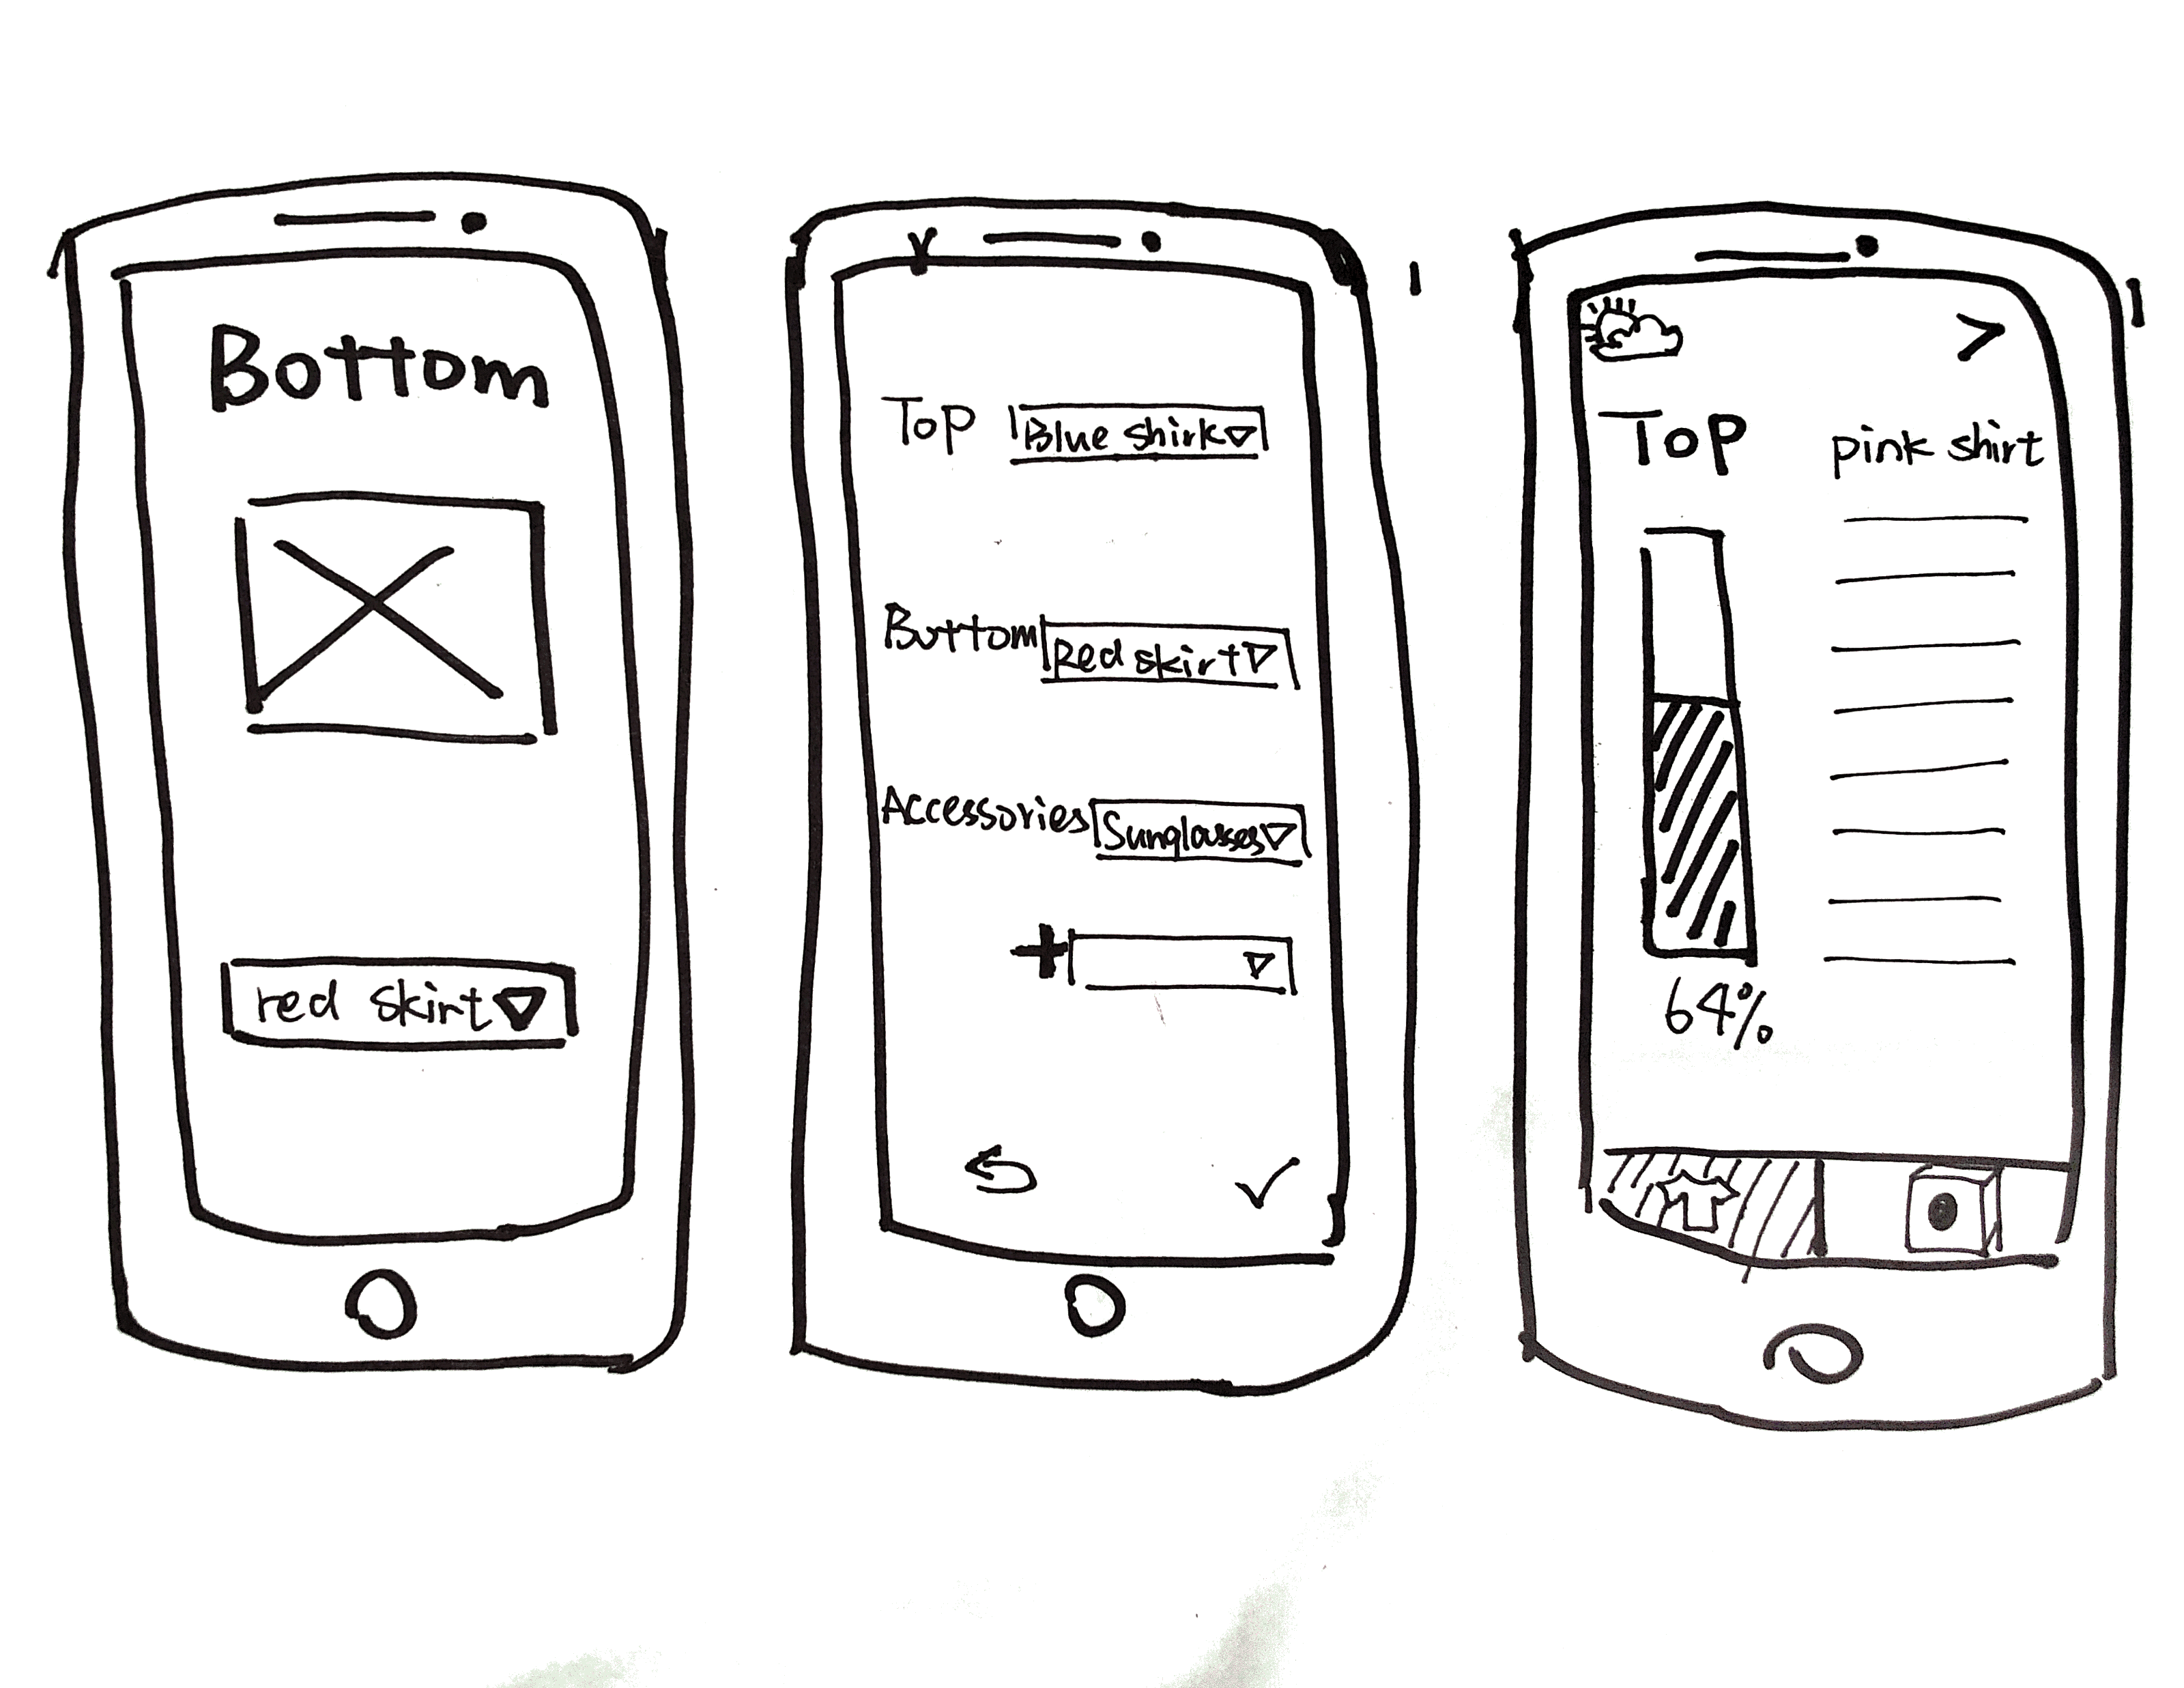 Bottom
red skirt
Top Blue shirk
Buttom Red skirt
Accessories Sunglasses
+
>
Top pink shirt
64%